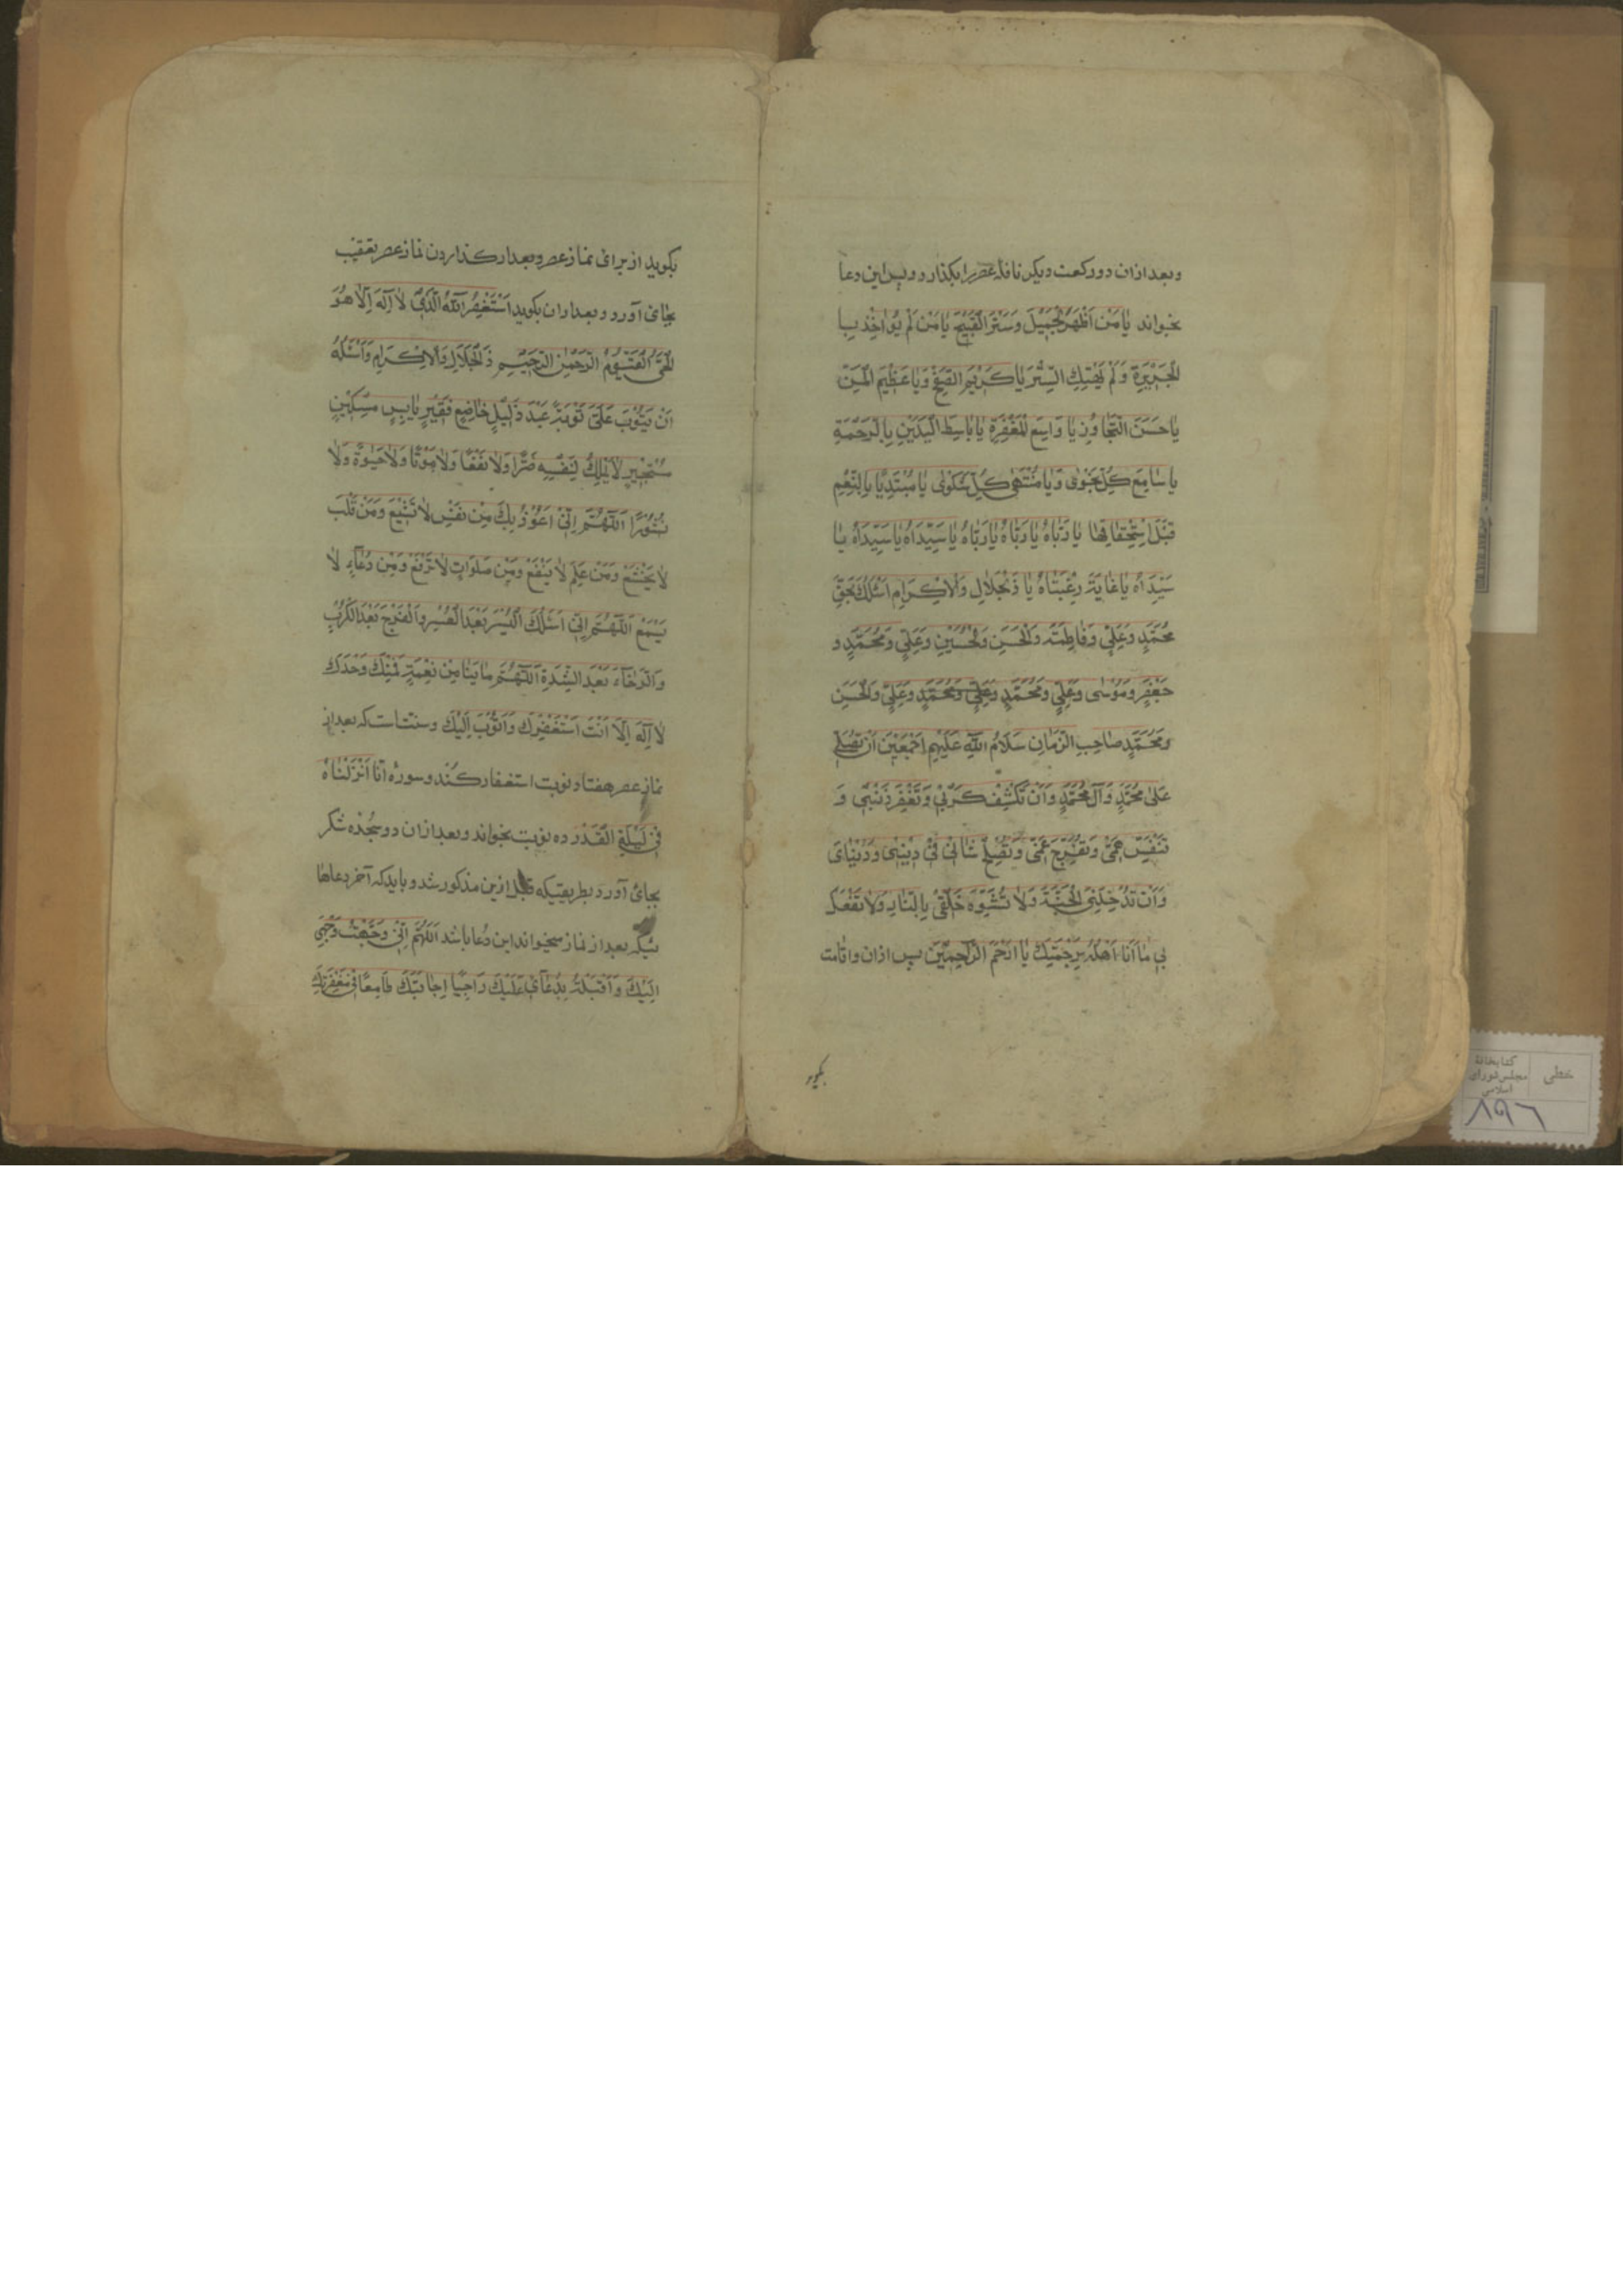 وبعد ازان دو ركعت ديكر نافله عصر را بكذارد و پس اين دعا
بخواند يٰا مَنْ اَظْهَرَ الْجَمِيْلَ وَسَتَرَ الْقَبِيْحَ يٰا مَنْ لَمْ يُوٰاخِذْ بِا
لْجَرِيْرَةِ وَلَمْ يَهْتِكِ السِّتْرَ يٰا كَرِيْمَ الصَّفْحِ وَيٰا عَظِيْمَ الْمَنِّ
يٰا حَسَنَ التَّجٰاوُزِ يٰا وَاسِعَ الْمَغْفِرَةِ يٰا بٰاسِطَ الْيَدَيْنِ بِالرَّحْمَةِ
يٰا سٰامِعَ كُلِّ نَجْوٰى وَيٰا مُنْتَهٰى كُلِّ شَكْوٰى يٰا مُبْتَدِيًا بِالنِّعَمِ
قَبْلَ اِسْتِحْقٰاقِهٰا يٰا رَبّٰاهُ يٰا رَبّٰاهُ يٰا رَبّٰاهُ يٰا سَيِّدَاهُ يٰا سَيِّدَاهُ يٰا
سَيِّدَاهُ يٰا غٰايَةَ رَغْبَتٰاهُ يٰا ذَالْجَلٰالِ وَالْاِكْرَامِ اَسْئَلُكَ بِحَقِّ
مُحَمَّدٍ وَعَلِيٍّ وَفٰاطِمَةَ وَالْحَسَنِ وَالْحُسَيْنِ وَعَلِيٍّ وَمُحَمَّدٍ وَ
جَعْفَرٍ وَمُوْسٰى وَعَلِيٍّ وَمُحَمَّدٍ وَعَلِيٍّ وَمُحَمَّدٍ وَعَلِيٍّ وَالْحَسَنِ
وَمُحَمَّدٍ صٰاحِبِ الزَّمٰانِ سَلَامُ اللّٰهِ عَلَيْهِمْ اَجْمَعِيْنَ اَنْ تُصَلِّىَ
عَلٰى مُحَمَّدٍ وَآلِ مُحَمَّدٍ وَاَنْ تَكْشِفَ كَرْبِيْ وَتَغْفِرَ ذَنْبِيْ وَ
تُنَفِّسَ هَمِّيْ وَتُفَرِّجَ غَمِّيْ وَتُصْلِحَ شَانِيْ فِيْ دِيْنِيْ وَدُنْيٰايَ
وَاَنْ تُدْخِلَنِيْ الْجَنَّةَ وَلَا تُشَوِّهَ خَلْقِيْ بِالنّٰارِ وَلَا تَفْعَلْ
بِيْ مٰا اَنَا اَهْلُهُ بِرَحْمَتِكَ يٰا اَرْحَمَ الرَّاحِمِيْنَ پس اذان واقامت
بكويد
بكويد از براى نماز عصر وبعد از كذاردن نماز عصر تعقيب
بجاى آورد و بعد ازان بكويد اَسْتَغْفِرُ اللّٰهَ الَّذِيْ لٰا اِلٰهَ اِلّٰا هُوَ
الْحَيُّ الْقَيُّوْمُ الرَّحْمٰنُ الرَّحِيْمُ ذَالْجَلٰالِ وَالْاِكْرَامِ وَاَسْئَلُهُ
اَنْ يَتُوْبَ عَلَيَّ تَوْبَةَ عَبْدٍ ذَلِيْلٍ خٰاضِعٍ فَقِيْرٍ بٰايِسٍ مِسْكِيْنٍ
مُسْتَجِيْرٍ لٰا يَمْلِكُ لِنَفْسِهِ ضَرًّا وَلٰا نَفْعًا وَلٰا مَوْتًا وَلٰا حَيٰوةً وَلٰا
نُشُوْرًا اَللّٰهُمَّ اِنِّيْ اَعُوْذُ بِكَ مِنْ نَفْسٍ لٰا تَشْبَعُ وَمِنْ قَلْبٍ
لٰا يَخْشَعُ وَمِنْ عِلْمٍ لٰا يَنْفَعُ وَمِنْ صَلَوٰاتٍ لٰا تُرْفَعُ وَمِنْ دُعٰآءٍ لٰا
يُسْمَعُ اَللّٰهُمَّ اِنِّيْ اَسْئَلُكَ الْيُسْرَ بَعْدَ الْعُسْرِ وَالْفَرَجَ بَعْدَ الْكَرْبِ
وَالرَّخٰآءَ بَعْدَ الشِّدَّةِ اَللّٰهُمَّ مٰا بِنٰا مِنْ نِعْمَةٍ فَمِنْكَ وَحْدَكَ
لٰا اِلٰهَ اِلّٰا اَنْتَ اَسْتَغْفِرُكَ وَاَتُوْبُ اِلَيْكَ وسنتست كه بعد از
نماز عصر هفتاد نوبت استغفار كند و سورهٔ اِنَّا اَنْزَلْنَاهُ
فِيْ لَيْلَةِ الْقَدْرِ ده نوبت بخواند و بعد ازان دو سجده شكر
بجاى آورد بطريقيكه قبل ازين مذكور شد و بايد كه آخر دعاها
ئيكه بعد از نماز ميخواند اين دعا باشد اَللّٰهُمَّ اِنِّيْ وَجَّهْتُ وَجْهِيَ
اِلَيْكَ وَاَقْبَلْتُ بِدُعٰآئِيْ عَلَيْكَ رَاجِيًا اِجٰابَتَكَ طٰامِعًا فِيْ مَغْفِرَتِكَ
خطى
كتابخانهٔ
مجلس شوراى
اسلامى
٨٩٦